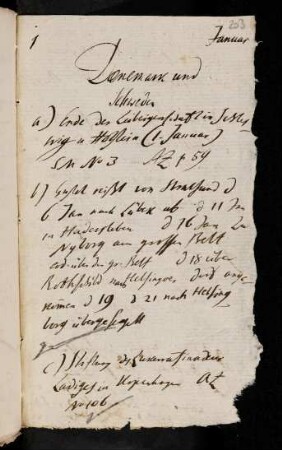 1 Januar 203
Dänemark und
Schweden
a) Ende der Leibeigenschaft in Schles
wig u Holstein (1. Januar)
No 3 AZ p 59
b) Gustav reißt von Stralsund d
6 Jan nach Lübek ab d 11 Jan
in Hadersleben d 16 Jan zu
Nyborg am großen Belt
über den gr. Belt d 18 über
Rothschild nach Helsingör
d 19 d 21 nach Helsing
borg übergesezt
c) Stiftung
in Kopenhagen AZ
No 106